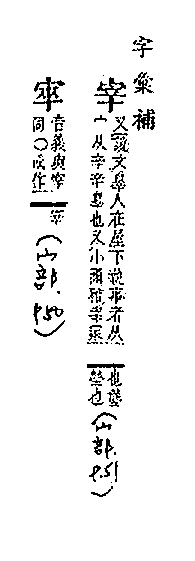 字彙補
宰
又說文辠人在屋下執事者从
宀从辛辛辠也又小爾雅宰冢
也
塋也
(宀部. P.51)
音義與宰
同〇或作
(宀部. P.50)